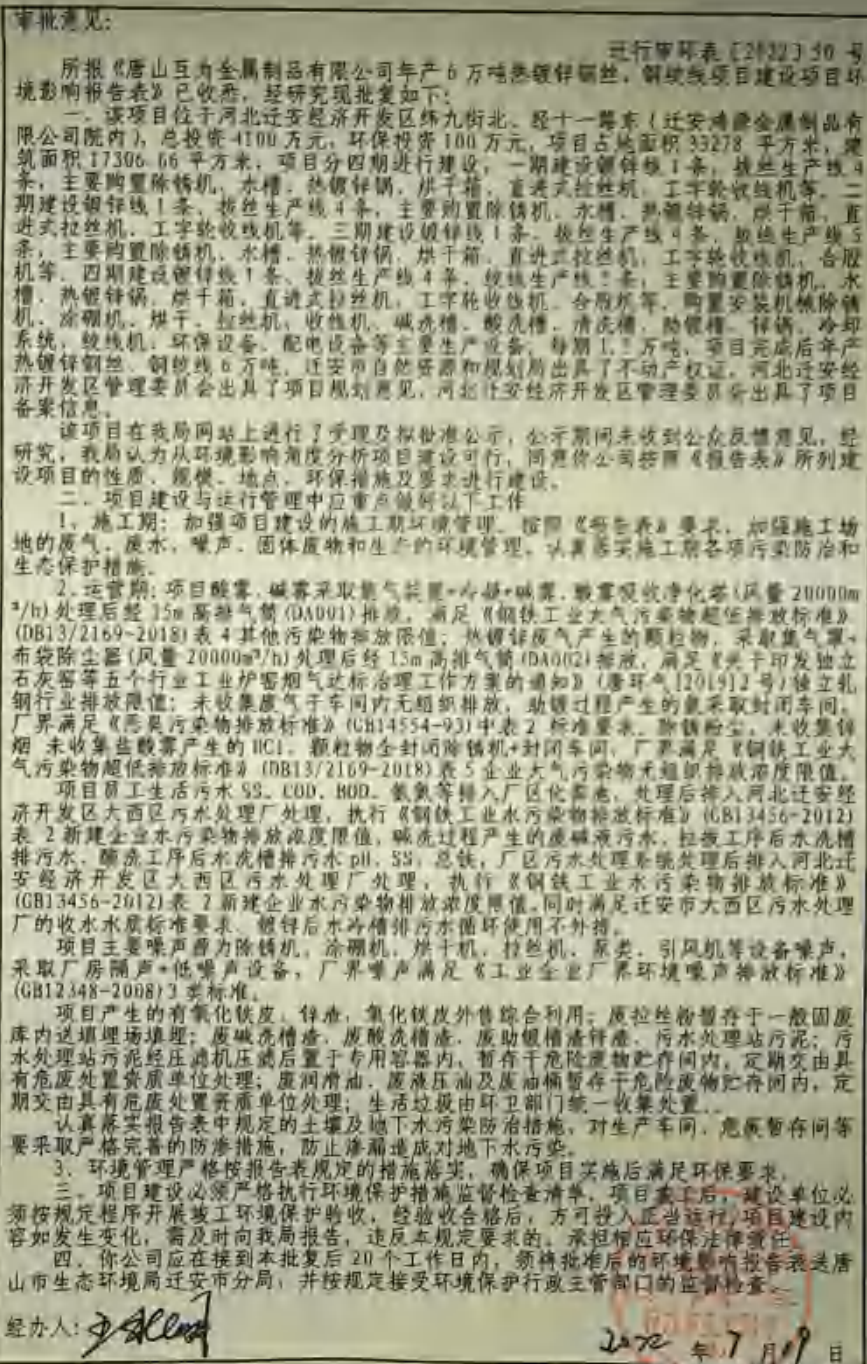 审批意见:
迁行审环表[2022]50号
所报《唐山互为金属制品有限公司年产6万吨热镀锌钢丝、钢绞线项目建设项目环
境影响报告表》已收悉,经研究现批复如下:
一、该项目位于河北迁安经济开发区纬九街北、经十一路东(迁安鸿源金属制品有
限公司院内),总投资4100万元,环保投资100万元,项目占地面积33278平方米,建
筑面积17306.66平方米,项目分四期进行建设,一期建设镀锌线1条,拔丝生产线4
条,主要购置除锈机、水槽、热镀锌锅、烘干箱、直进式拉丝机、工字轮收线机等。二
期建设镀锌线1条、拔丝生产线4条,主要购置除锈机、水槽、热镀锌锅、烘干箱、直
进式拉丝机、工字轮收线机等。三期建设镀锌线1条、拔丝生产线4条、绞线生产线5
条,主要购置除锈机、水槽、热镀锌锅、烘干箱、直进式拉丝机、工字轮收线机、合股
机等。四期建设镀锌线1条、拔丝生产线4条、绞线生产线 条,主要购置除锈机、水
槽、热镀锌锅、烘干箱、直进式拉丝机、工字轮收线机、合股机等。购置安装机械除锈
机、涂硼机、烘干、拉丝机、收线机、碱洗槽、酸洗槽、清洗槽、助镀槽、锌锅、冷却
系统、绞线机、环保设备、配电设备等主要生产设备,每期1. 万吨,项目完成后年产
热镀锌钢丝、钢绞线6万吨。迁安市自然资源和规划局出具了不动产权证,河北迁安经
济开发区管理委员会出具了项目规划意见,河北迁安经济开发区管理委员会出具了项目
备案信息。
该项目在我局网站上进行了受理及拟批准公示,公示期间未收到公众反馈意见,经
研究,我局认为从环境影响角度分析项目建设可行,同意你公司按照《报告表》所列建
设项目的性质、规模、地点、环保措施及要求进行建设。
二、项目建设与运行管理中应重点做好以下工作
1、施工期:加强项目建设的施工期环境管理。按照《报告表》要求,加强施工场
地的废气、废水、噪声、固体废物和生态的环境管理,认真落实施工期各项污染防治和
生态保护措施。
2、运营期:项目酸雾、碱雾采取集气装置+冷凝+碱雾、酸雾吸收净化塔(风量20000m
³/h)处理后经15m高排气筒(DA001)排放,满足《钢铁工业大气污染物超低排放标准》
(DB13/2169-2018)表4其他污染物排放限值;热镀锌废气产生的颗粒物,采取集气罩+
布袋除尘器(风量20000m³/h)处理后经15m高排气筒(DA002)排放,满足《关于印发独立
石灰窑等五个行业工业炉窑烟气达标治理工作方案的通知》(唐环气[2019]2号)独立轧
钢行业排放限值;未收集废气于车间内无组织排放,助镀过程产生的氨采取封闭车间,
厂界满足《恶臭污染物排放标准》(GB14554-93)中表2 标准要求。除锈粉尘、未收集锌
烟 未收集盐酸雾产生的HCl、颗粒物全封闭除锈机+封闭车间,厂界满足《钢铁工业大
气污染物超低排放标准》(DB13/2169-2018)表5企业大气污染物无组织排放浓度限值。
项目员工生活污水SS、COD、BOD、氨氮等排入厂区化粪池,处理后排入河北迁安经
济开发区大西区污水处理厂处理,执行《钢铁工业水污染物排放标准》(GB13456-2012)
表 2新建企业水污染物排放浓度限值,碱洗过程产生的废碱液污水、拉拔工序后水洗槽
排污水、酸洗工序后水洗槽排污水pH、SS、总铁,厂区污水处理系统处理后排入河北迁
安经济开发区大西区污水处理厂处理,执行《钢铁工业水污染物排放标准》
(GB13456-2012)表 2新建企业水污染物排放浓度限值,同时满足迁安市大西区污水处理
厂的收水水质标准要求、镀锌后水冷槽排污水循环使用不外排。
项目主要噪声源为除锈机、涂硼机、烘干机、拉丝机、泵类、引风机等设备噪声,
采取厂房隔声+低噪声设备,厂界噪声满足《工业企业厂界环境噪声排放标准》
(GB12348-2008)3类标准。
项目产生的有氧化铁皮、锌渣、氧化铁皮外售综合利用;废拉丝粉暂存于一般固废
库内送填埋场填埋;废碱洗槽渣、废酸洗槽渣、废助镀槽渣锌渣、污水处理站污泥;污
水处理站污泥经压滤机压滤后置于专用容器内,暂存于危险废物贮存间内,定期交由具
有危废处置资质单位处理;废润滑油、废液压油及废油桶暂存于危险废物贮存间内,定
期交由具有危废处置资质单位处理;生活垃圾由环卫部门统一收集处置。
认真落实报告表中规定的土壤及地下水污染防治措施,对生产车间、危废暂存间等
要采取严格完善的防渗措施,防止渗漏造成对地下水污染。
3、环境管理严格按报告表规定的措施落实,确保项目实施后满足环保要求。
三、项目建设必须严格执行环境保护措施监督检查清单,项目竣工后,建设单位必
须按规定程序开展竣工环境保护验收,经验收合格后,方可投入正当运行,项目建设内
容如发生变化,需及时向我局报告,违反本规定要求的,承担相应环保法律责任
四、你公司应在接到本批复后20个工作日内,须将批准后的环境影响报告表送唐
山市生态环境局迁安市分局,并按规定接受环境保护行政主管部门的监督检查。
经办人:
2022 年 7 月 19 日